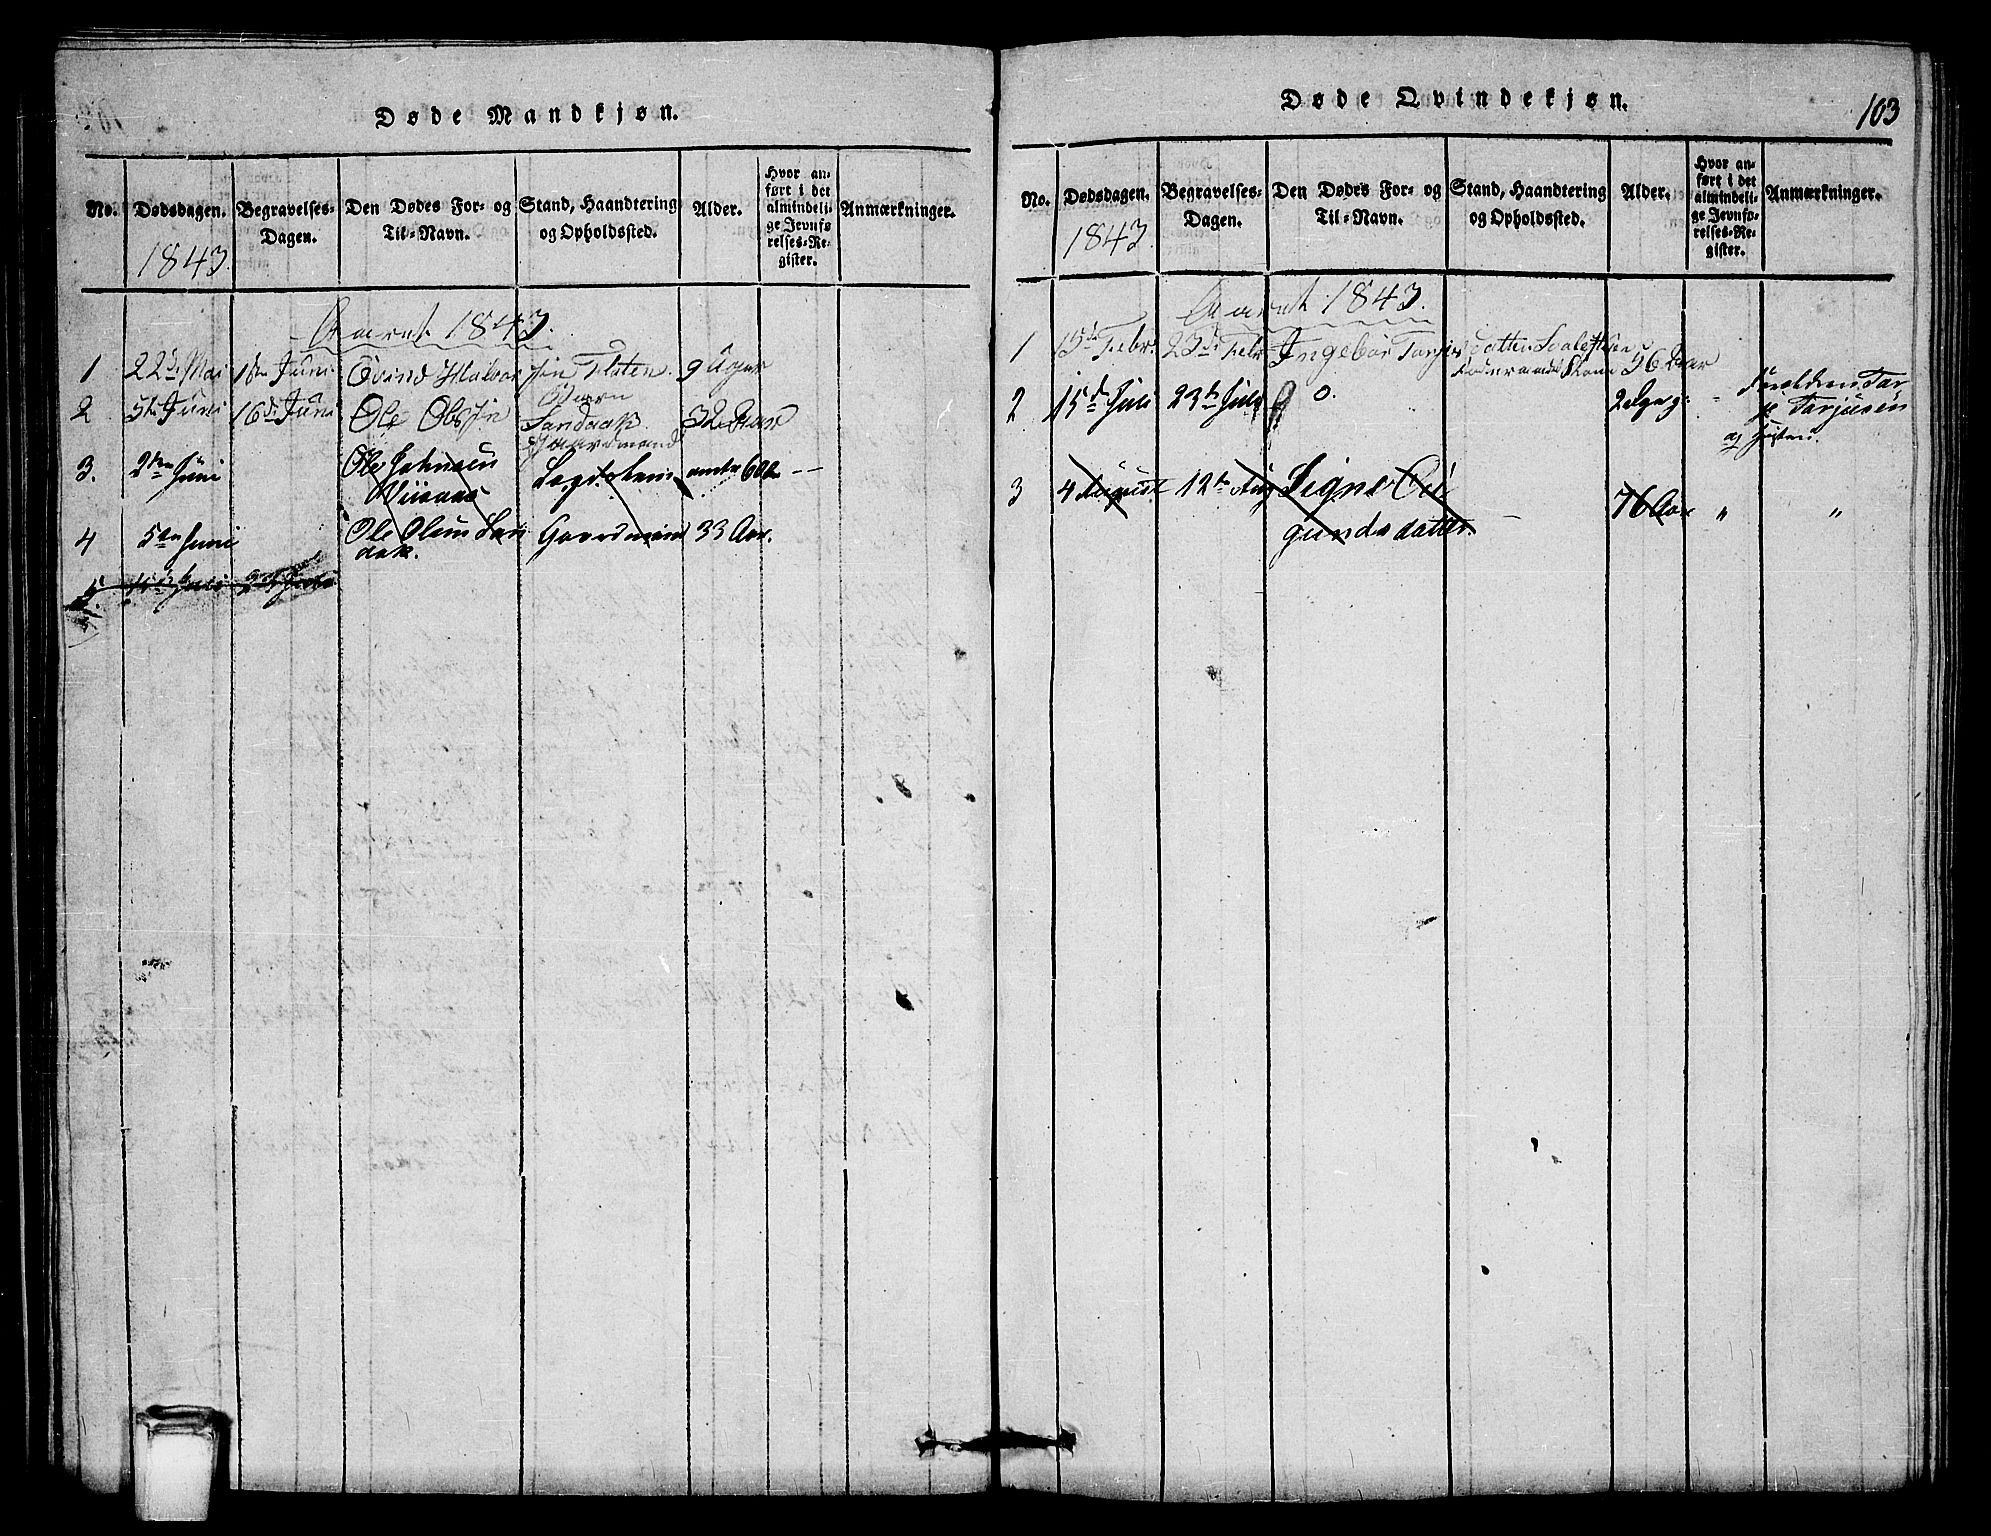 Døde Mandkjøn.
No. Dødsdagen. Begravelses-Dagen. Den Dødes For- og Til-Navn. Stand, Haandtering og Opholdssted. Alder. Hvor anført i det almindelige Jevnførelses-Register. Anmærkninger.
1843.
Aaret 1843.
1 22de Mai 1ste Juni Övind Halvorsön Flaten 9 Uger
Barn
2 5te Juni 16de Juni Ole Olesön Sandaak 32 Aar
Gaardmand
3. 2den Juni Ole Johnsen 60
4 5te Juni Ole Olsen San Gaardmand 33 Aar.
dak.
5. Juli
Døde Qvindekjøn.
103
No. Dødsdagen. Begravelses-Dagen. Den Dødes For- og Til-Navn. Stand, Haandtering og Opholdssted. Alder. Hvor anført i det almindelige Jevnførelses-Register. Anmærkninger.
1843.
Aaret 1843.
1 15de Febr. 23de Febr Ingebör 56 Aar
2 15de Juli 23de Juli 0. 2 Forældren Tar
Tarjusen
og
3 4 August 12te Aug Signe
gundsdatter. — 76 Aar " "